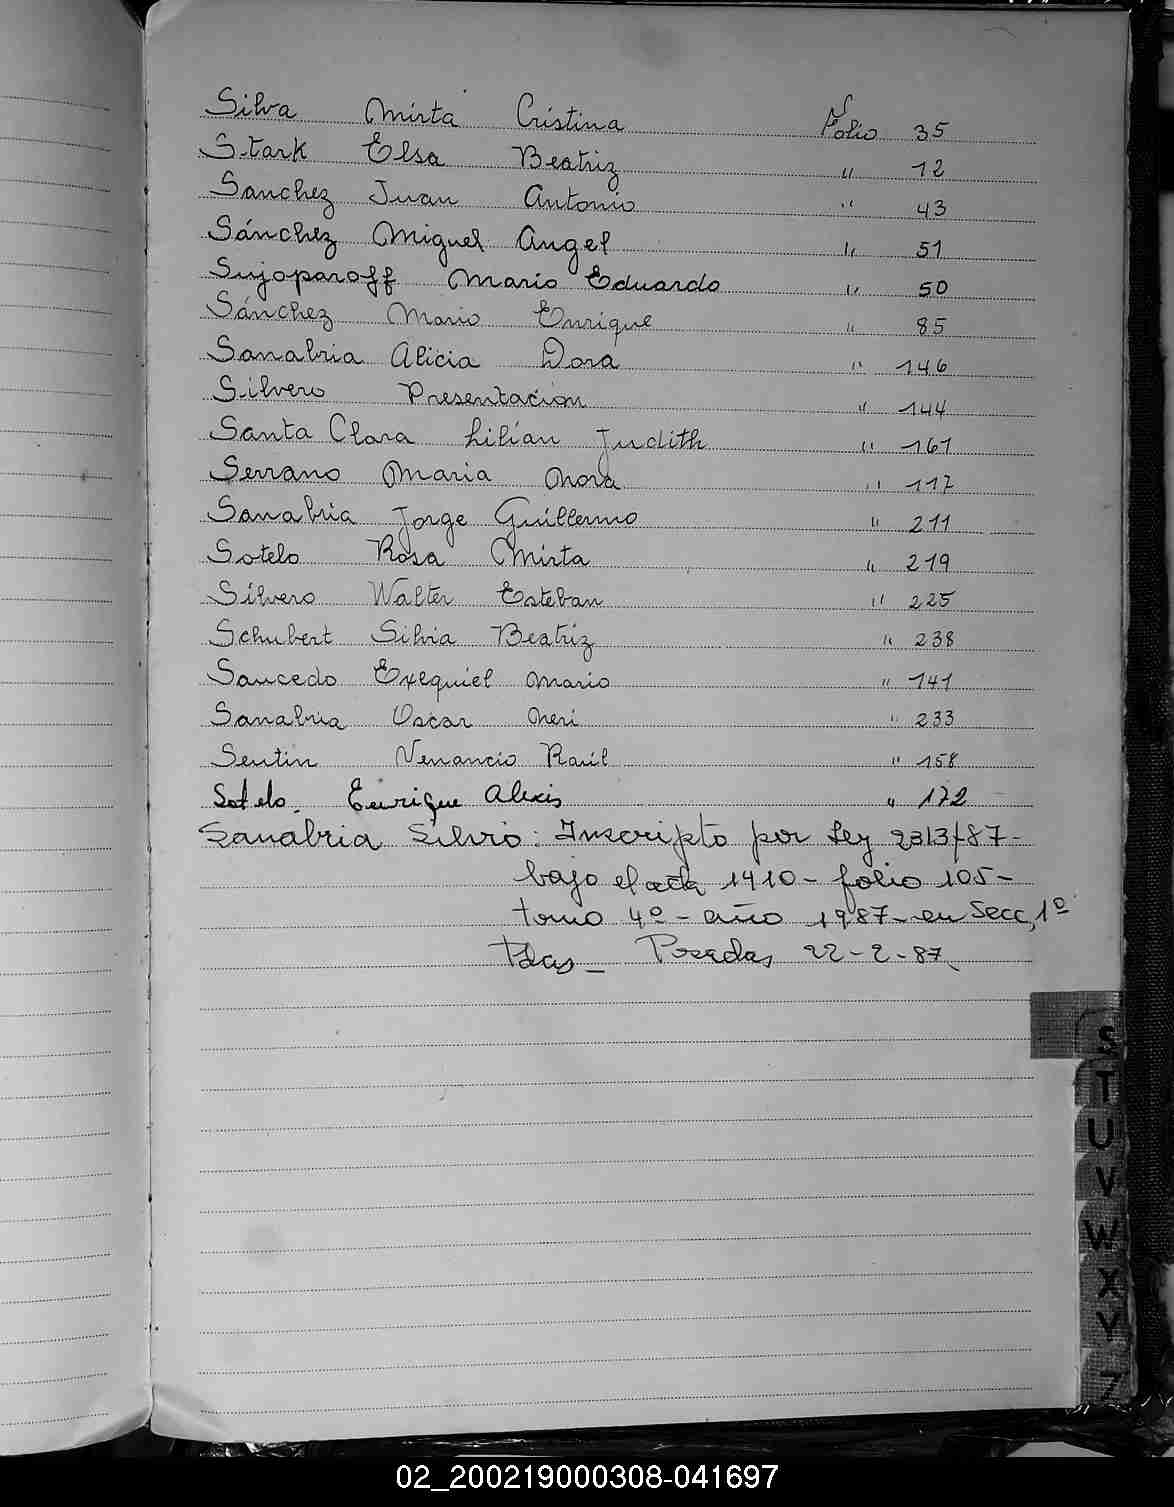 Silva Mirta Cristina Folio 35
Stark Elsa Beatriz " 12
Sanchez Juan Antonio " 43
Sánchez Miguel Angel " 51
Sujoparoff Mario Eduardo " 50
Sánchez Mario Enrique " 85
Sanabria Alicia Dora " 146
Silvero Presentación " 144
Santa Clara Lilian Judith " 161
Serrano Maria Nora " 117
Sanabria Jorge Guillermo " 211
Sotelo Rosa Mirta " 219
Silvero Walter Esteban " 225
Schubert Silvia Beatriz " 238
Saucedo Exequiel Mario " 141
Sanabria Oscar Neri " 233
Sentin Venancio Raúl " 158
Sotelo. Enrique Alexis " 172
Sanabria Silvio: Inscripto por Ley 2313/87-
bajo el acta 1410- folio 105-
tomo 4º- año 1987- en Secc, 1º
Pdas_ Posadas 22-2-87
S
T
U
V
W
X
Y
Z
02_200219000308-041697